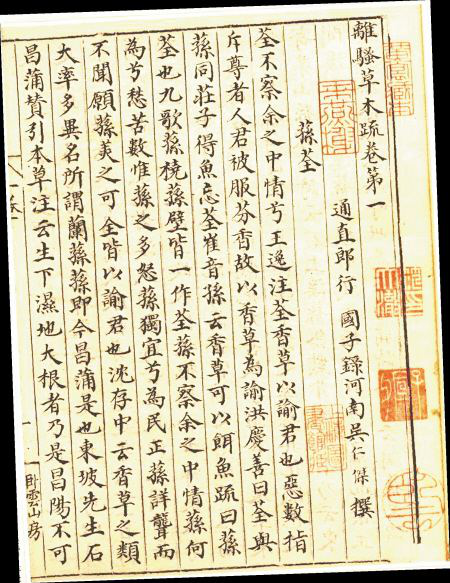 離騷草木疏卷第一
通直郎行 國子錄河南吳仁傑 撰
蓀荃
荃不察余之中情兮王逸注荃香草以諭君也惡數指
斥尊者人君被服芬香故以香草為諭洪慶善曰荃與
蓀同莊子得魚忘荃崔音孫云香草可以餌魚疏曰蓀
荃也九歌蓀橈蓀壁皆一作荃蓀不察余之中情蓀何
為兮愁苦數惟蓀之多怒蓀獨宜兮為民正蓀詳聾而
不聞願蓀美之可全皆以諭君也沈存中云香草之類
大率多異名所謂蘭蓀蓀即今昌蒲是也東坡先生石
昌蒲贊引本草注云生下濕地大根者乃是昌陽不可
卧雲山房